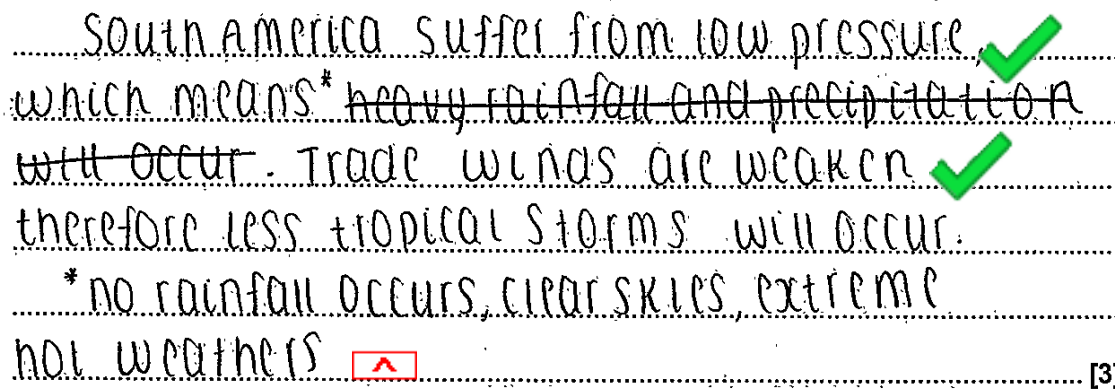 South America suffer from low pressure,
which means* heavy rainfall and precipitation
will occur. Trade winds are weaken
therefore less tropical storms will occur.
*no rainfall occurs, clear skies, extreme
hot weathers
[3